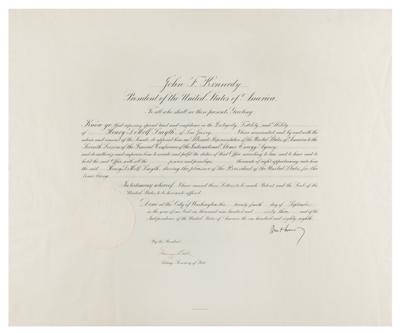 John F. Kennedy
President of the United States of America.
To all who shall see these presents, Greeting:
Know ye, that reposing special trust and confidence in the Integrity, Fidelity and Ability
of Henry DeWolf Smyth, of New Jersey, I have nominated and by and with the
advice and consent of the Senate do appoint him an Alternate Representative of the United States of America to the
Seventh Session of the General Conference of the International Atomic Energy Agency,
and do authorize and empower him to execute and fulfil the duties of that Office according to law and to have and to
hold the said Office, with all the powers and privileges thereunto of right appertaining unto him
the said Henry DeWolf Smyth, during the pleasure of the President of the United States for the
time being.
In testimony whereof, I have caused these Letters to be made Patent and the Seal of the
United States to be hereunto affixed.
Done at the City of Washington this twenty-fourth day of September
in the year of our Lord one thousand nine hundred and sixty-three and of the
Independence of the United States of America the one hundred and eighty-eighth.
By the President:
Acting Secretary of State